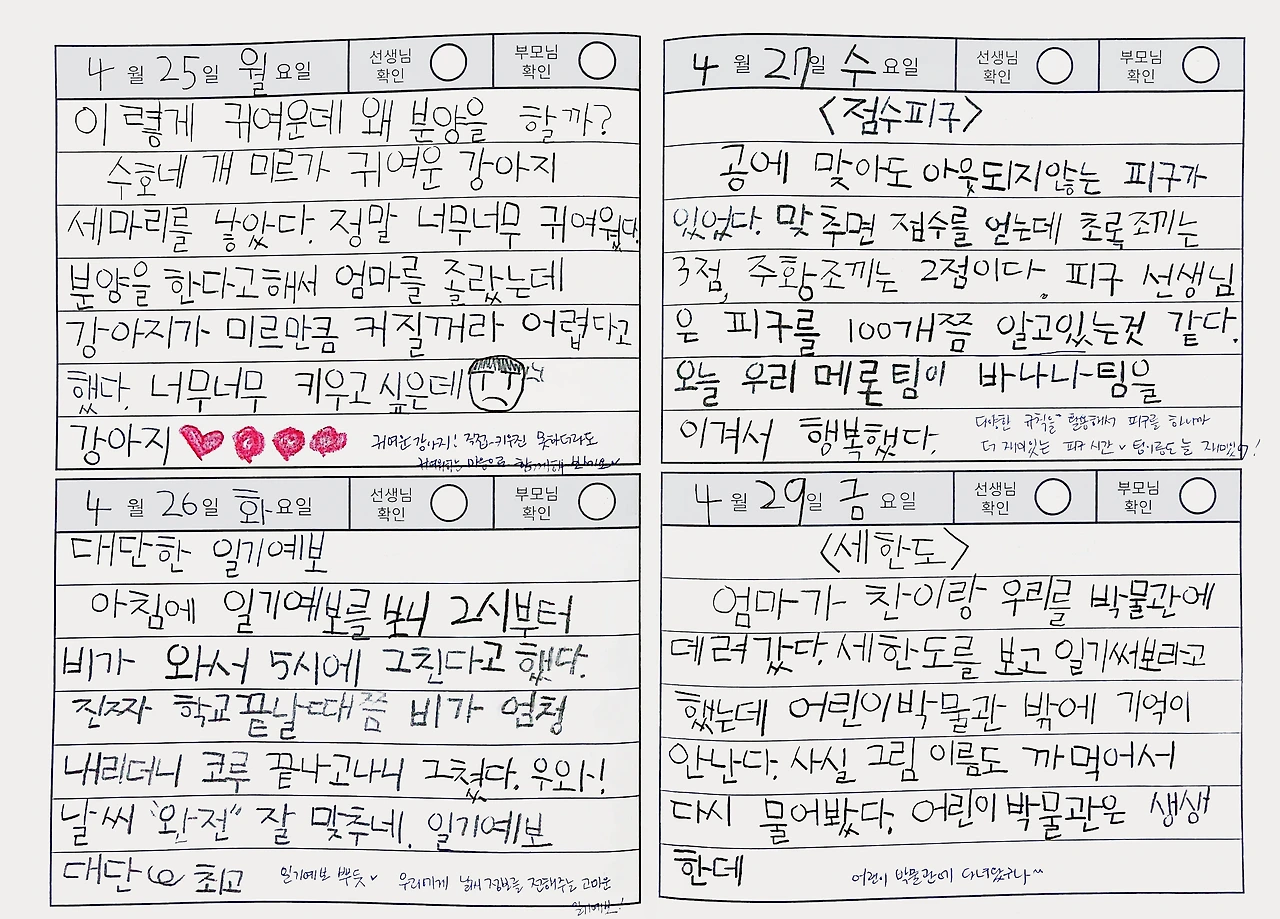 4 월 25일 월 요일 선생님 확인 부모님 확인
이 렇게 귀여운데 왜 분양을 할까?
수호네 개 미르가 귀여운 강아지
세마리를 낳았다. 정말 너무너무 귀여웠다.
분양을 한다고해서 엄마를 졸랐는데
강아지가 미르만큼 커질꺼라 어렵다고
했다. 너무너무 키우고 싶은데
강아지
귀여운 강아지! 직접 키우진 못하더라도
귀여워하는 마음으로 함께해 보아요
4 월 26일 화요일 선생님 확인 부모님 확인
대단한 일기예보
아침에 일기예보를 보니 2시부터
비가 와서 5시에 그친다고 했다.
진짜 학교끝날때쯤 비가 엄청
내리더니 코루 끝나고나니 그쳤다. 우와!
날씨 "완전" 잘 맞추네. 일기예보
대단 최고
일기예보 뿌듯 우리에게 날씨 정보를 전해주는 고마운
일기예보!
4 월 27일 수 요일 선생님 확인 부모님 확인
<점수피구>
공에 맞아도 아웃되지않는 피구가
있었다. 맞추면 점수를 얻는데 초록조끼는
3점, 주황조끼는 2점이다. 피구 선생님
은 피구를 100개쯤 알고있는것 같다.
오늘 우리 메론팀이 바나나팀을
이겨서 행복했다.
다양한 규칙을 활용해서 피구를 하니까
더 재미있는 피구 시간 팀이름도 늘 재미있구!
4 월 29일 금 요일 선생님 확인 부모님 확인
<세한도>
엄마가 찬이랑 우리를 박물관에
데려갔다. 세한도를 보고 일기써보라고
했는데 어린이박물관 밖에 기억이
안난다. 사실 그림 이름도 까먹어서
다시 물어봤다. 어린이박물관은 생생
한데
어린이 박물관에 다녀왔구나^^